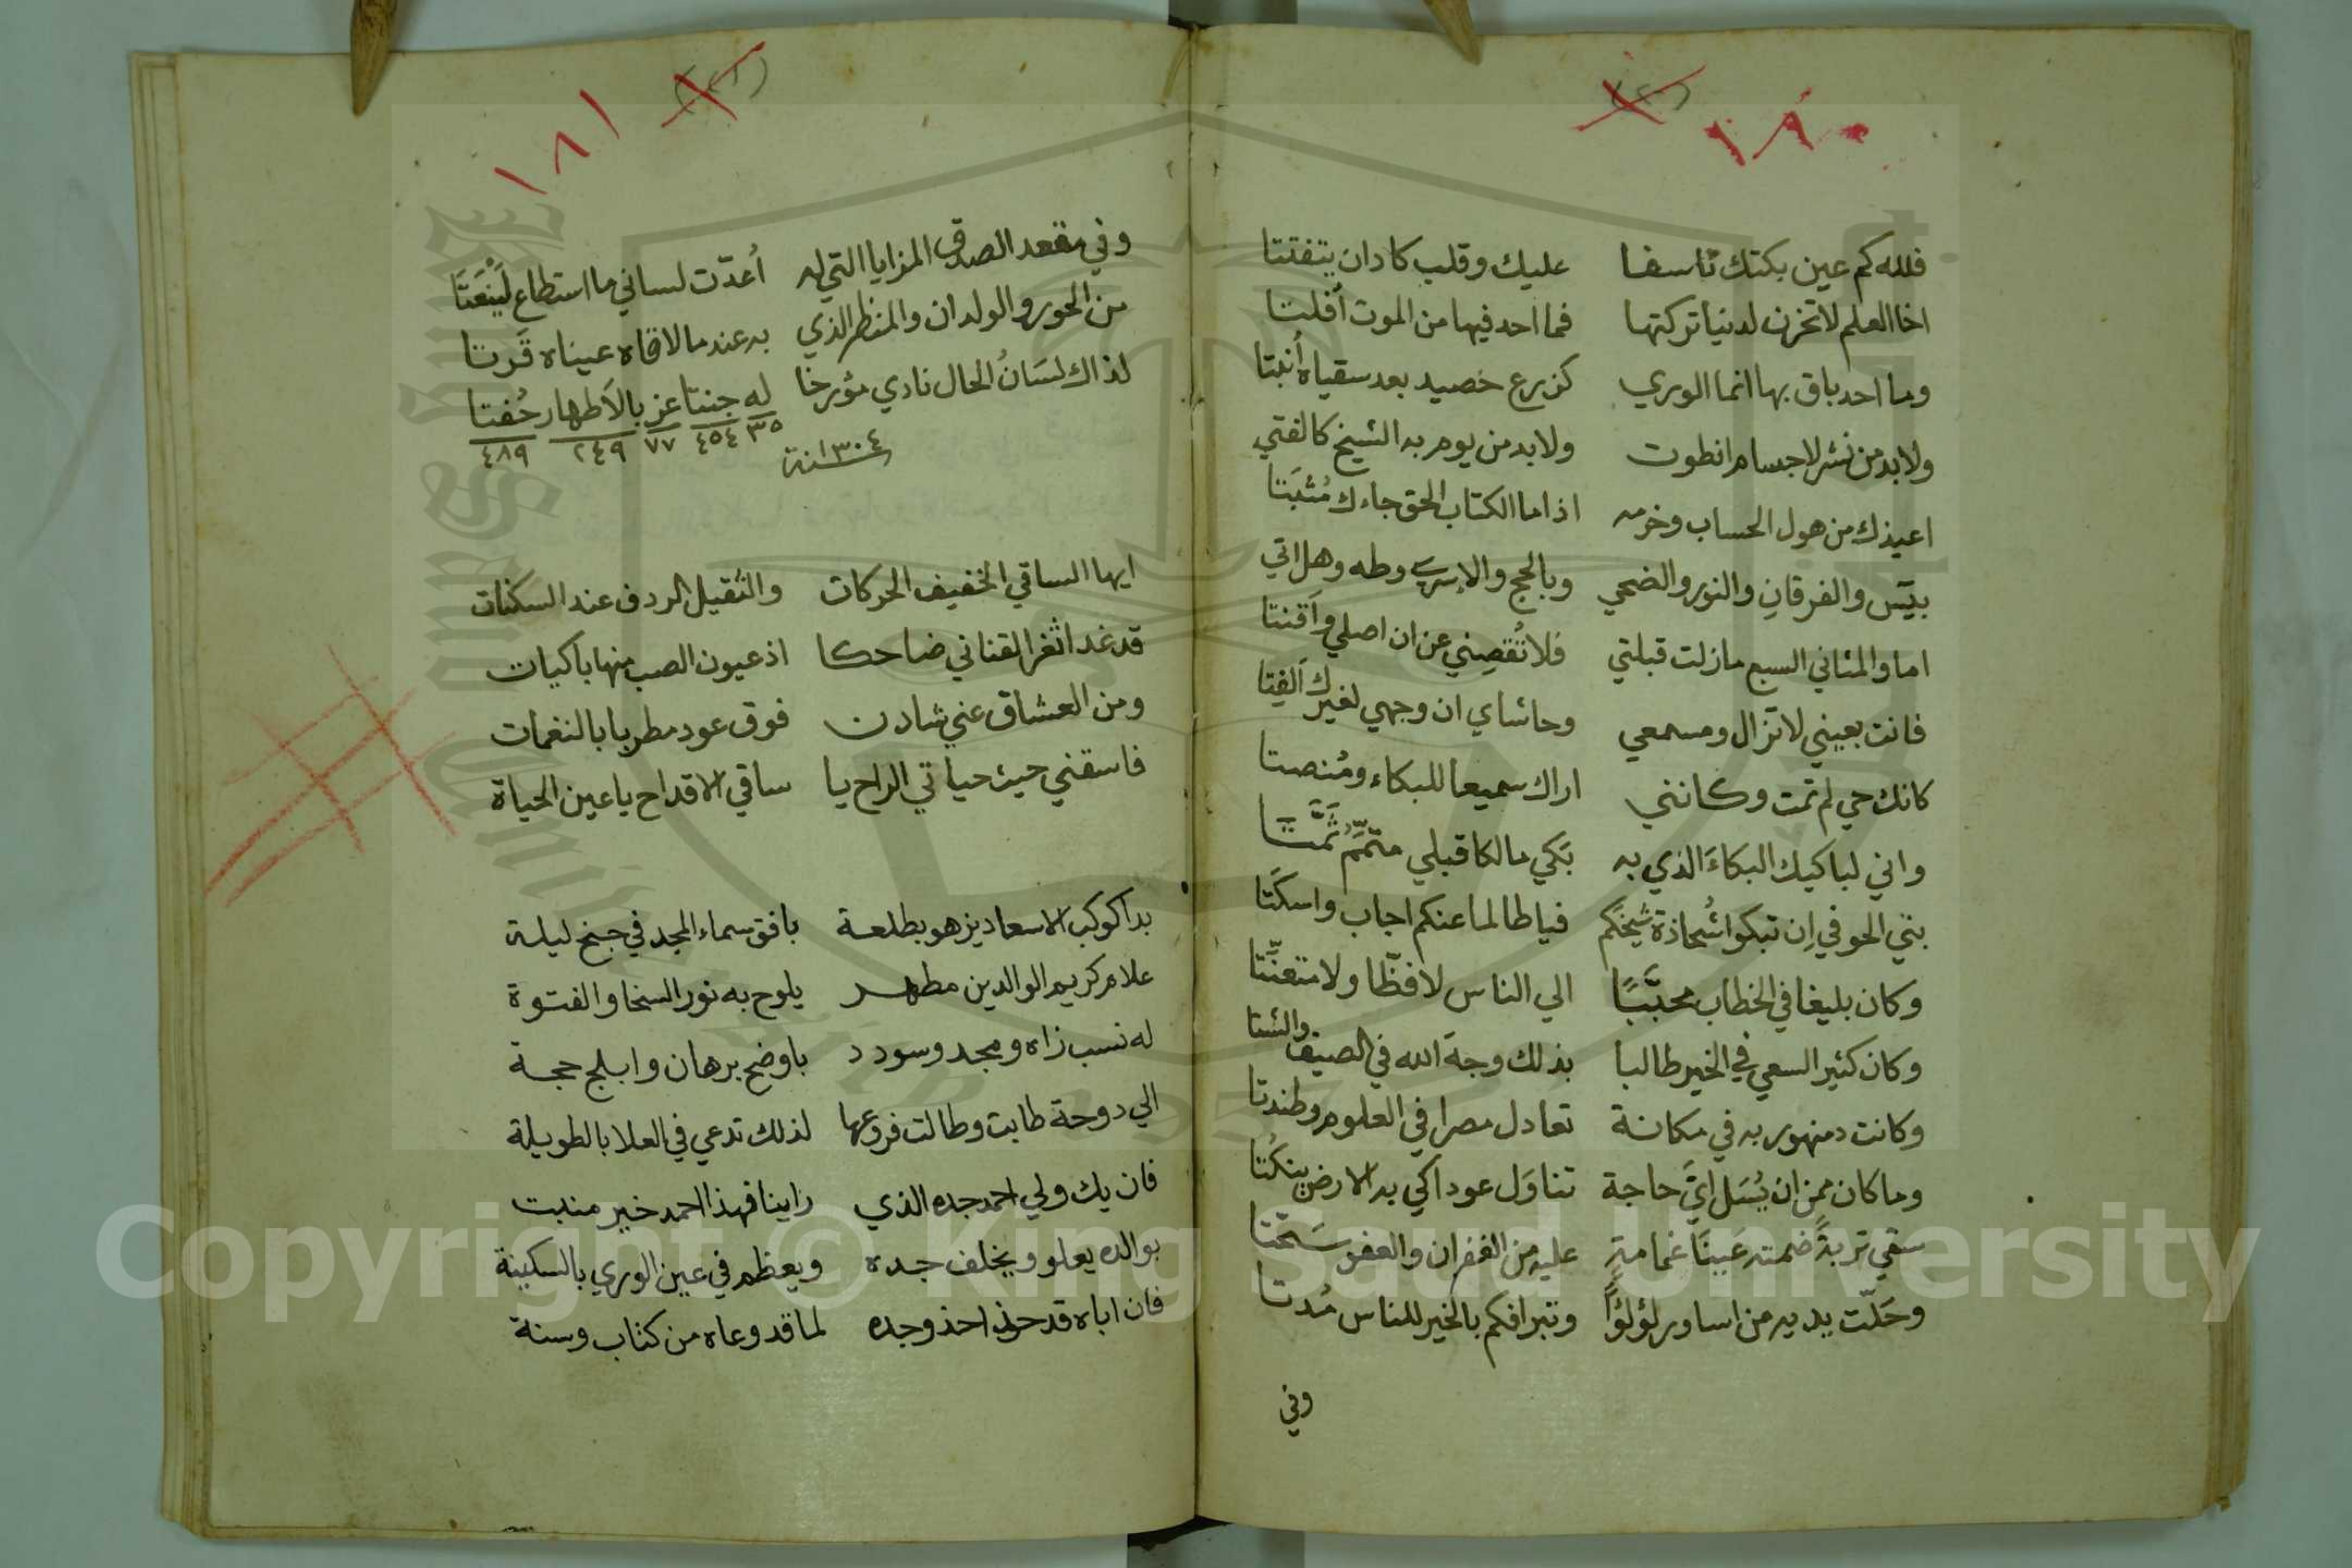 ١٨٠
فلله كم عين بكتك تاسفا عليك وقلب كادان يتفتتا
اخا العلم لا تحزن لدنيا تركتها فما احد فيها من الموت أفلتا
وما احد باق بها انما الوري كزرع خصيد بعد سقياه أنبتا
ولا بد من نشر لاجسام انطوت ولا بد من يوم به الشيخ كالفتي
اعيذك من هول الحساب وخزيه اذا ما الكتاب الحق جاءك مُثبَتا
بيسَ والفرقانِ والنور والضحي وبالحج والإسري وطه وهل اتي
اما والمثاني السبع مازلت قبلتي فلا تُقصِيني عن ان اصلي وأقنتا
فانت بعيني لا تزال ومسمعي وحاشاي ان وجهي لغيرك الفِتا
كانك حي لم تمت وكانني اراك سميعا للبكاء ومُنصتا
واني لباكيك البكاءَ الذي به بَكي مالكا قبلي متمِّم ثَمَّتَا
بني الحوفي إن تبكوا شُحاذة شيخكم فياطالما عنكم اجاب واسكَتا
وكان بليغا في الخطاب محبَّبًا الي الناس لا فظّا ولا متعنِّتا
وكان كثير السعي في الخير طالبا بذلك وجهَ الله في الصيف والشتا
وكانت دمنهور به في مكانة تعادل مصرا في العلوم وطندتا
وما كان ممن ان يُسَل ايَّ حاجة تناوَل عودا كي به الارض ينكُتا
سقي تربةً ضمته عَينَا غمامةٍ عليه من الغفران والعفو سَحَّتا
وحَلّت يديه من اساور لؤلؤًا وتبرا فكم بالخير للناس مُدتا
وفي
١٨١
وفي مقعد الصدق المزايا التي له أعدّت لساني ما استطاع لَيَنْعَتَا
من الحور والولدان والمنظر الذي به عندما لاقاه عيناه قَرتا
لذاك لسَانُ الحال نادي مؤرخا له جنتا عز بالأطهار حُفتا
٣٥ ٤٥٤ ٧٧ ٢٤٩ ٤٨٩
سنة ١٣٠٤
ايها الساقي الخفيف الحركات والثقيل الردف عند السكنات
قد غدا ثغر القناني ضاحكا اذ عيون الصب منها باكيات
ومن العشاق غني شادن فوق عود مطربا بالنغمات
فاسقني حيث حياتي الراح يا ساقي الاقداح يا عين الحياة
بدا كوكب الاسعاد يزهو بطلعة بافق سماء المجد في جنح ليلة
غلام كريم الوالدين مطهر يلوح به نور السخا والفتوة
له نسب زاه ومجد وسودد باوضح برهان وابلج حجة
الي دوحة طابت وطالت فروعها لذلك تدعي في العلا بالطويلة
فان يك ولي احمد جده الذي راينا فهذا احمد خير منبت
بوالده يعلو ويخلف جده ويعظم في عين الوري بالسكينة
فان اباه قد حذا حذو جده لما قد وعاه من كتاب وسنة
Copyright © King Saud University